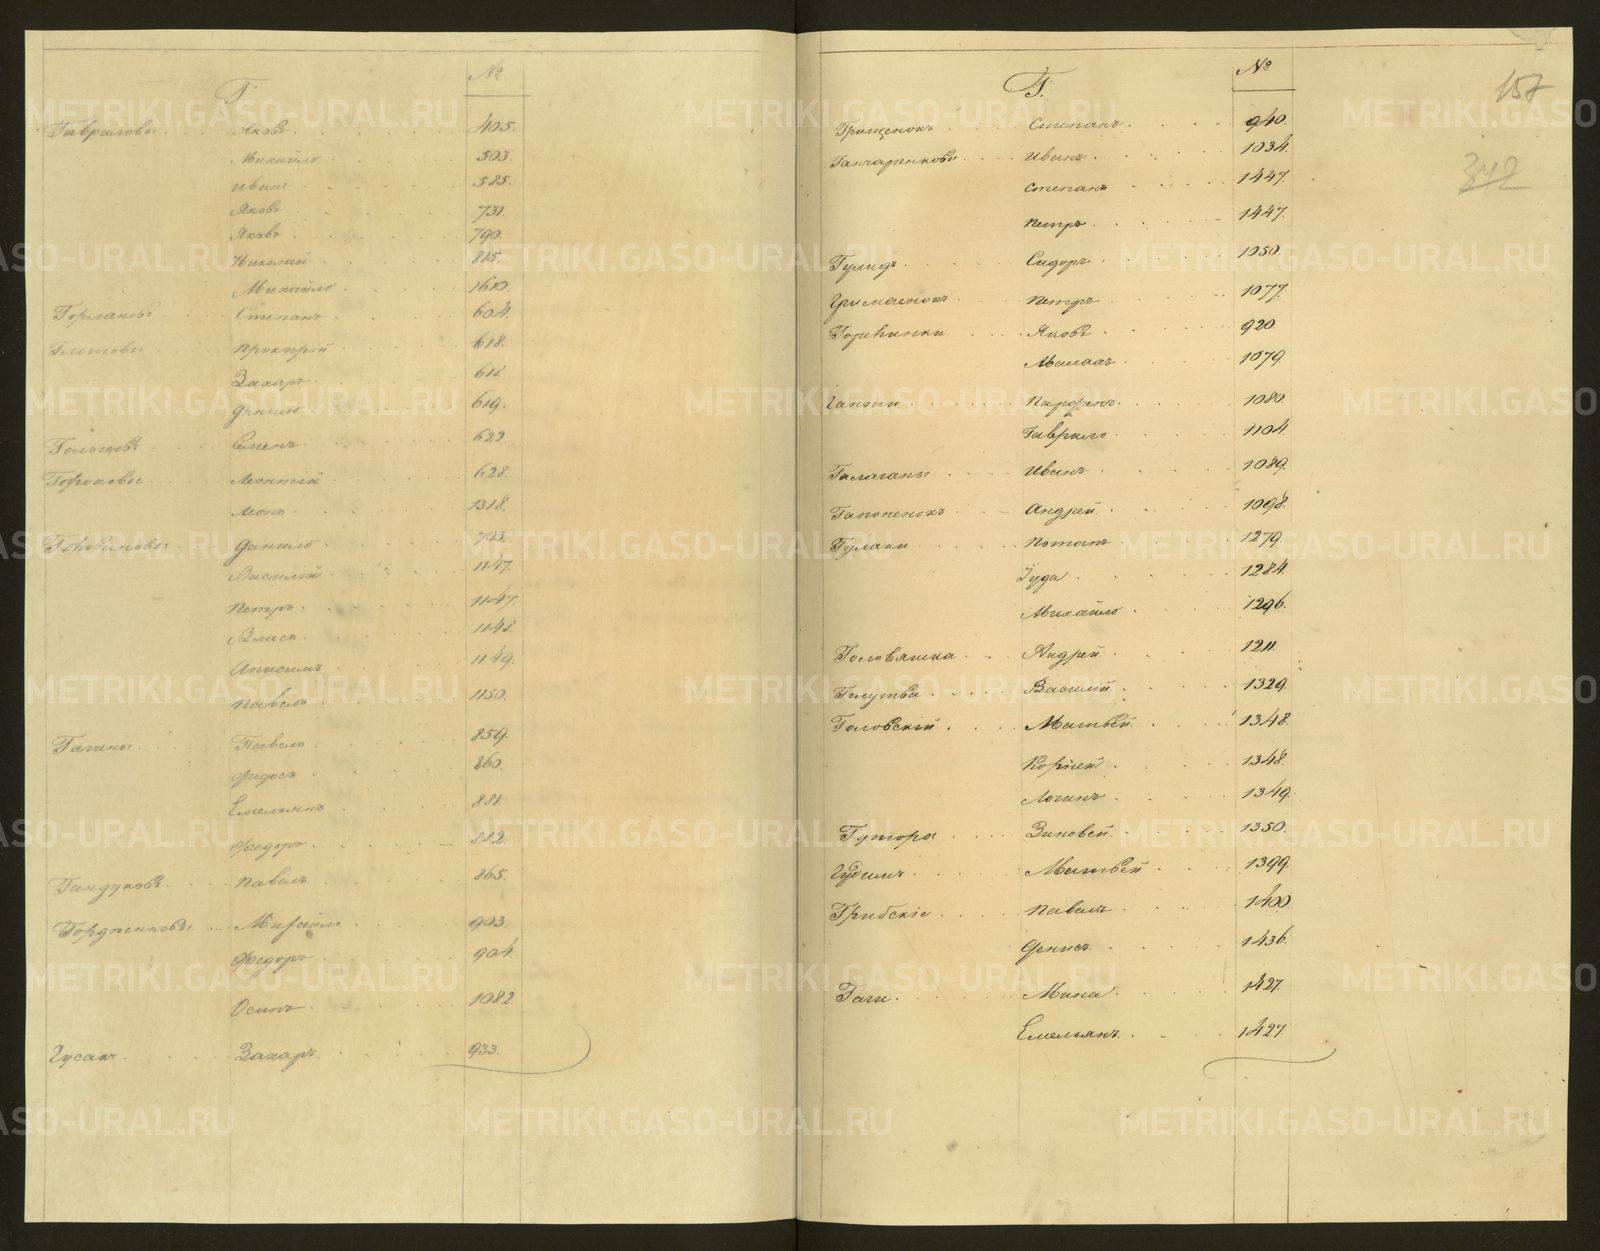 Г. №
Гавриловы Яковъ 405.
Михайло 503.
Иванъ 585.
Яковъ 731.
Яковъ 790.
Николай 815.
Михайло 1610.
Горлановъ Степанъ 604.
Глотовы Прокофій 618.
Захаръ 618.
Данило 619.
Семенъ 622.
Гороховы Леонтій 628.
Леонъ 1318.
Данило 703.
Василій 1147.
Петръ 1147.
Власъ 1148.
Анисимъ 1149.
Павелъ 1150.
Гагины Павелъ 859.
Федосъ 860.
Емельянъ 881.
Федоръ 882.
Гандуковъ Павелъ 865.
Гордіенковы Михайло 903.
Федоръ 904.
Осипъ 1082.
Гусакъ Захаръ 933.
Г. №
157
312
Грищенокъ Степанъ 940.
Ганчаренковы Иванъ 1034.
Степанъ 1447.
Петръ 1447.
Гулидъ Сидоръ 1050.
Петръ 1077.
Яковъ 920
1079
Ганжи Парфенъ 1080.
Гаврило 1104.
Галаганы Иванъ 1089.
Гапоненокъ Андрей 1098.
Гулаки Потапъ 1279.
Іуда 1284.
Михайло 1296.
Головяшка Андрей 1211.
Голутва Василій 1329.
Головскій Матвей 1348.
Корней 1348.
Логинъ 1349.
Гутора Зиновей 1350.
Гудимъ Матвей 1399.
Грибскіе Павелъ 1400.
Денисъ 1436.
Гаги Мина 1427.
Емельянъ 1427.
METRIKI.GASO-URAL.RU